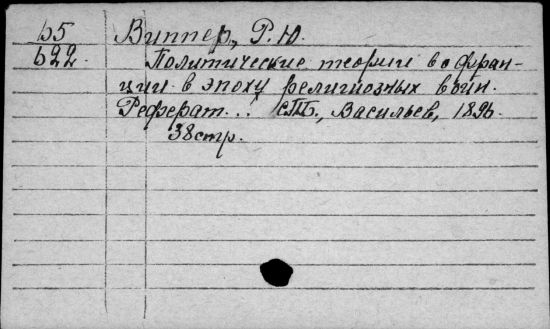 б5 Виппер, Р. Ю.
б22. Политические теории во Фран-
ции в эпоху религиозных войн.
Реферат.. СПБ., Васильев, 1896.
38стр.